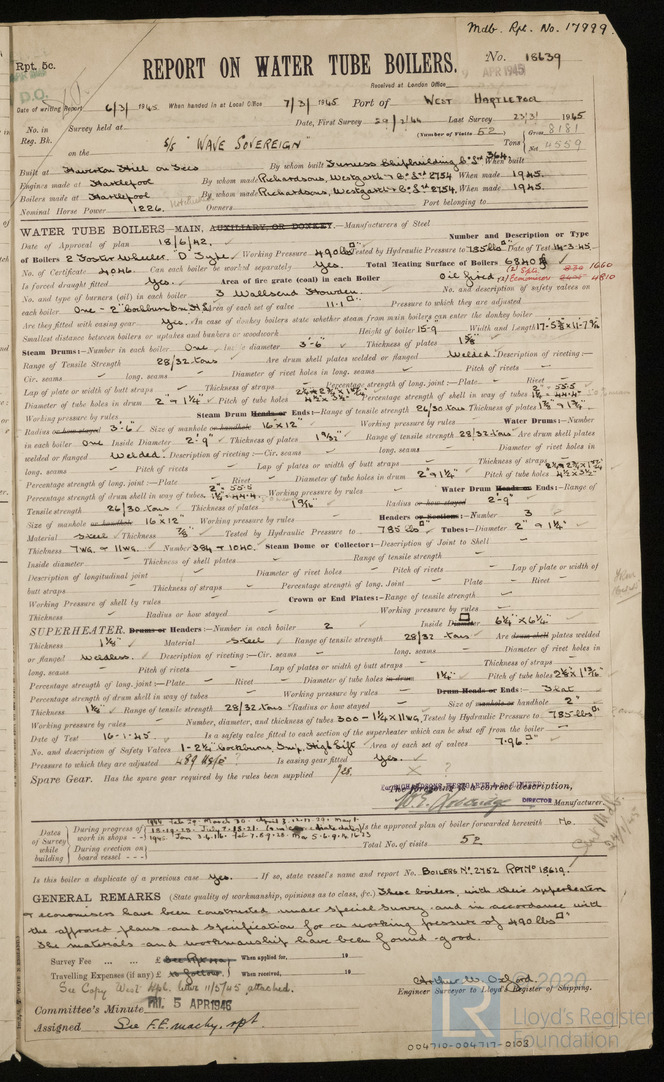 Mdb. Rpt. No. 17999.
Rpt. 5c.
REPORT ON WATER TUBE BOILERS.
No. 18639
APR 1945
D.O.
Received at London Office
Date of writing Report 6/3/1945 When handed in at Local Office 7/3/1945 Port of WEST HARTLEPOOL
No. in Reg. Bk. Survey held at Date, First Survey 29/2/44 Last Survey 23/3/1945
(Number of Visits 52)
on the S/S "WAVE SOVEREIGN" Tons Gross 8181 Net 4559
Built at Haverton Hill on Tees By whom built Furness Shipbuilding Co Ltd 364 When built
Engines made at Hartlepool By whom made Richardsons, Westgarth & Co Ltd 2754 When made 1945.
Boilers made at Hartlepool By whom made Richardsons, Westgarth & Co Ltd 2754 When made 1945.
Nominal Horse Power 1226. Owners Port belonging to
WATER TUBE BOILERS—MAIN, AUXILIARY OR DONKEY.—Manufacturers of Steel
Date of Approval of plan 18/6/42. Number and Description or Type
of Boilers 2 Foster Wheeler "D" Type Working Pressure 490 lbs Tested by Hydraulic Pressure to 785 lbs Date of Test 14-3-45
No. of Certificate 4046. Can each boiler be worked separately Yes. Total Heating Surface of Boilers 6840
Is forced draught fitted Yes. Area of fire grate (coal) in each Boiler Oil fired (2) Sptr 1660
(2) Economisers 4810
No. and type of burners (oil) in each boiler 3 Wallsend Howden. No. and description of safety valves on
each boiler One - 2" Cockburn Area of each set of valve 11.1 Pressure to which they are adjusted
Are they fitted with easing gear Yes. In case of donkey boilers state whether steam from main boilers can enter the donkey boiler
Smallest distance between boilers or uptakes and bunkers or woodwork Height of boiler 15-9 Width and Length 17-5⅜ × 11-7
Steam Drums:—Number in each boiler One Inside diameter 3'-6" Thickness of plates 1⅞"
Range of Tensile Strength 28/32 tons Are drum shell plates welded or flanged Welded. Description of riveting:—
Cir. seams long. seams Diameter of rivet holes in long. seams Pitch of rivets
Lap of plate or width of butt straps Thickness of straps Percentage strength of long. joint:—Plate Rivet
Diameter of tube holes in drum 2" + 1¼" Pitch of tube holes Percentage strength of shell in way of tubes 2" - 55.5 1¼ - 44.4
Working pressure by rules Steam Drum Heads or Ends:—Range of tensile strength 26/30 tons Thickness of plates
Radius or how stayed 3'-6" Size of manhole or handhole 16×12" Working pressure by rules Water Drums:—Number
in each boiler One Inside Diameter 2'-9" Thickness of plates 1 9/32" Range of tensile strength 28/32 tons Are drum shell plates
welded or flanged Welded. Description of riveting:—Cir. seams long. seams Diameter of rivet holes in
long. seams Pitch of rivets Lap of plates or width of butt straps Thickness of straps
Percentage strength of long. joint:—Plate Rivet Diameter of tube holes in drum 2" + 1¼" Pitch of tube holes
Percentage strength of drum shell in way of tubes 2" - 55.5 1¼ - 44.4. Working pressure by rules Water Drum Heads or Ends:—Range of
Tensile strength 26/30 tons Thickness of plates Radius or how stayed 2'-9"
Size of manhole or handhole 16×12 Working pressure by rules Headers or Sections:—Number 3
Material Steel Thickness ⅞" Tested by Hydraulic Pressure to 785 lbs Tubes:—Diameter 2" + 1¼"
Thickness 7WG. + 11WG. Number 384 + 1040. Steam Dome or Collector:—Description of Joint to Shell
Inside diameter Thickness of shell plates Range of tensile strength
Description of longitudinal joint Diameter of rivet holes Pitch of rivets Lap of plate or width of
butt straps Thickness of straps Percentage strength of long. Joint Plate Rivet
Working Pressure of shell by rules Crown or End Plates:—Range of tensile strength
Thickness Radius or how stayed Working pressure by rules
SUPERHEATER. Drums or Headers:—Number in each boiler 2 Inside Diameter 6¼" × 6¼"
Thickness 1⅛" Material Steel Range of tensile strength 28/32 tons Are drum shell plates welded
or flanged Weldless. Description of riveting:—Cir. seams long. seams Diameter of rivet holes in
long. seams Pitch of rivets Lap of plates or width of butt straps Thickness of straps
Percentage strength of long. joint:—Plate Rivet Diameter of tube holes in drum 1¼" Pitch of tube holes
Percentage strength of drum shell in way of tubes Working pressure by rules Drum Heads or Ends:— Flat
Thickness 1⅛" Range of tensile strength 28/32 tons Radius or how stayed Size of manhole or handhole 2"
Working pressure by rules Number, diameter, and thickness of tubes 300 - 1¼ × 11WG. Tested by Hydraulic Pressure to 785 lbs
Date of Test 16-1-45. Is a safety valve fitted to each section of the superheater which can be shut off from the boiler
No. and description of Safety Valves 1 - 2¼ Cockburns, Imp. High Lift Area of each set of valves 7.96
Pressure to which they are adjusted 489 lbs/□" ? Is easing gear fitted Yes.
Spare Gear. Has the spare gear required by the rules been supplied Yes. × ?
The foregoing is a correct description,
DIRECTOR Manufacturer.
Dates of Survey while building
During progress of work in shops
During erection on board vessel
Is the approved plan of boiler forwarded herewith No.
Total No. of visits 52
Is this boiler a duplicate of a previous case Yes. If so, state vessel's name and report No. BOILERS No. 2752 RPT No 18619.
GENERAL REMARKS (State quality of workmanship, opinions as to class, &c.) These boilers, with their superheaters
+ economisers have been constructed under special survey and in accordance with
the approved plans and specification for a working pressure of 490 lbs□"
The materials and workmanship have been found good.
Survey Fee ... ... £ See Rpt When applied for, 19
Travelling Expenses (if any) £ to follow. When received, 19
See Copy West Hpl. letter 11/5/45 attached.
Arthur W. Oxford
Engineer Surveyor to Lloyd's Register of Shipping.
Committee's Minute FRI. 5 APR 1946
Assigned See F.E. machy. rpt.
© 2020
Lloyd's Register
Foundation
004710-004717-0103